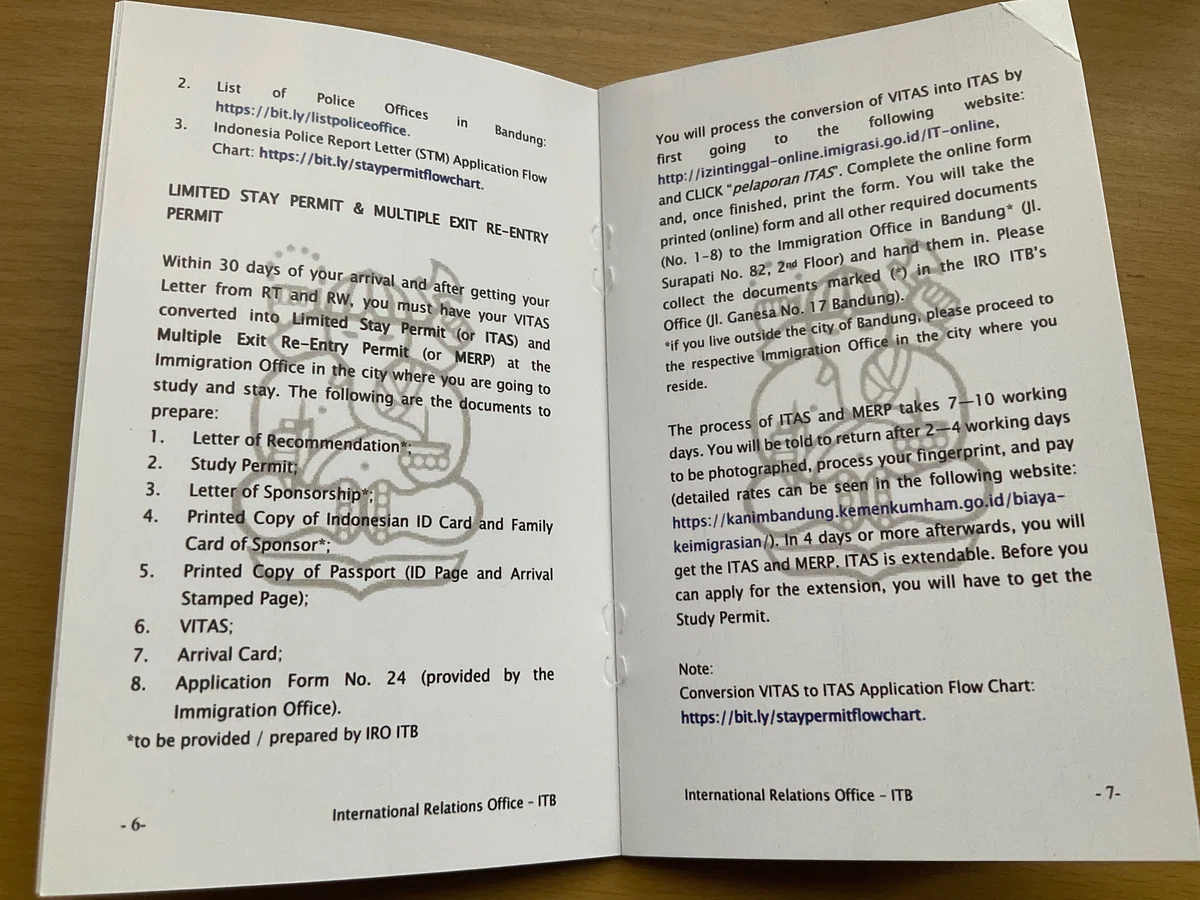 2. List of Police Offices in Bandung:
https://bit.ly/listpoliceoffice.
3. Indonesia Police Report Letter (STM) Application Flow
Chart: https://bit.ly/staypermitflowchart.
LIMITED STAY PERMIT & MULTIPLE EXIT RE-ENTRY
PERMIT
Within 30 days of your arrival and after getting your
Letter from RT and RW, you must have your VITAS
converted into Limited Stay Permit (or ITAS) and
Multiple Exit Re-Entry Permit (or MERP) at the
Immigration Office in the city where you are going to
study and stay. The following are the documents to
prepare:
1. Letter of Recommendation*;
2. Study Permit;
3. Letter of Sponsorship*;
4. Printed Copy of Indonesian ID Card and Family
Card of Sponsor*;
5. Printed Copy of Passport (ID Page and Arrival
Stamped Page);
6. VITAS;
7. Arrival Card;
8. Application Form No. 24 (provided by the
Immigration Office).
*to be provided / prepared by IRO ITB
International Relations Office - ITB
- 6-
You will process the conversion of VITAS into ITAS by
first going to the following website:
http://izintinggal-online.imigrasi.go.id/IT-online,
and CLICK "pelaporan ITAS". Complete the online form
and, once finished, print the form. You will take the
printed (online) form and all other required documents
(No. 1-8) to the Immigration Office in Bandung* (Jl.
Surapati No. 82, 2nd Floor) and hand them in. Please
collect the documents marked (*) in the IRO ITB's
Office (Jl. Ganesa No. 17 Bandung).
*if you live outside the city of Bandung, please proceed to
the respective Immigration Office in the city where you
reside.
The process of ITAS and MERP takes 7—10 working
days. You will be told to return after 2—4 working days
to be photographed, process your fingerprint, and pay
(detailed rates can be seen in the following website:
https://kanimbandung.kemenkumham.go.id/biaya-
keimigrasian/). In 4 days or more afterwards, you will
get the ITAS and MERP. ITAS is extendable. Before you
can apply for the extension, you will have to get the
Study Permit.
Note:
Conversion VITAS to ITAS Application Flow Chart:
https://bit.ly/staypermitflowchart.
International Relations Office - ITB
- 7-